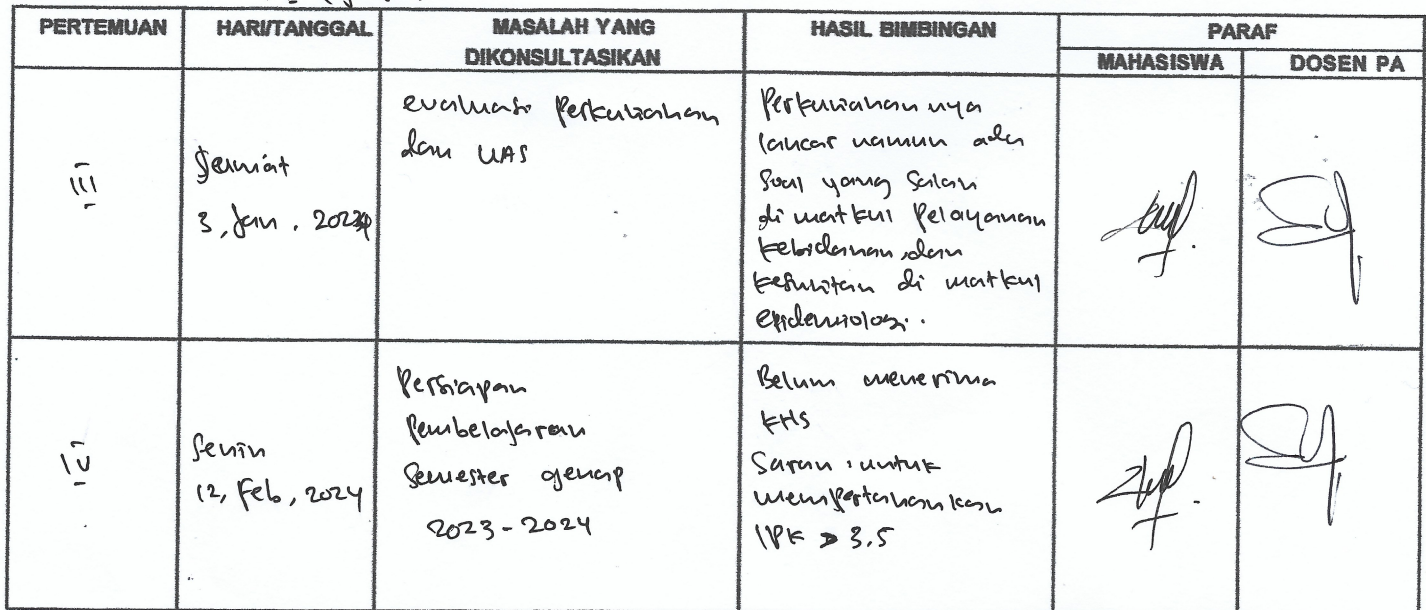 PERTEMUAN HARI/TANGGAL MASALAH YANG DIKONSULTASIKAN HASIL BIMBINGAN PARAF
MAHASISWA DOSEN PA
III
Jumiat
3, Jan. 2024
evaluasi Perkuliahan
dan UAS
Perkuliahan nya
lancar namun ada
Soal yang Salah
di matkul Pelayanan
kebidanan, dan
kesulitan di matkul
epidemiologi.
IV
Senin
12, Feb, 2024
Persiapan
Pembelajaran
Semester genap
2023 - 2024
Belum menerima
KHS
Saran : untuk
mempertahankan
IPK > 3.5